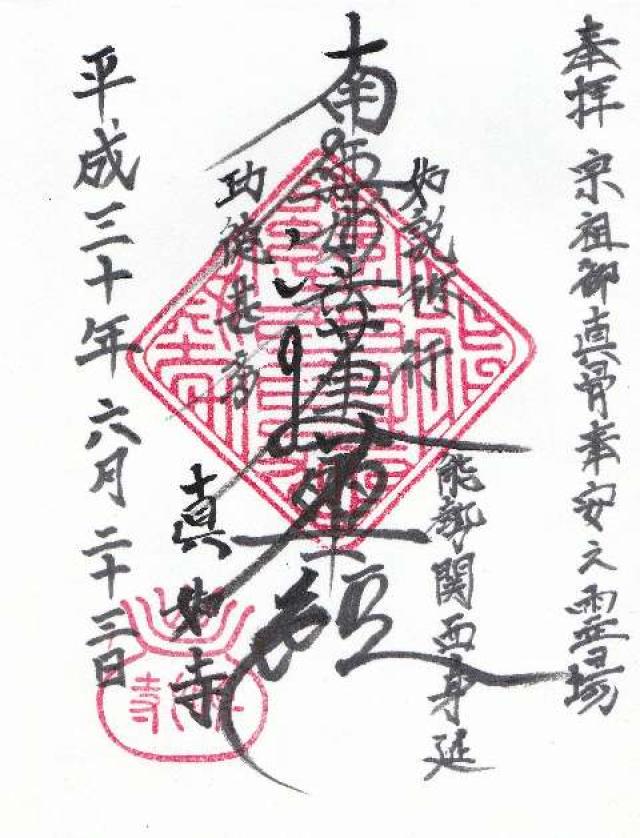 奉拝 宗祖御真骨奉安之霊場
如説修行
能勢関西身延
南無妙法蓮華経
功徳甚多
真如寺
平成三十年六月二十三日